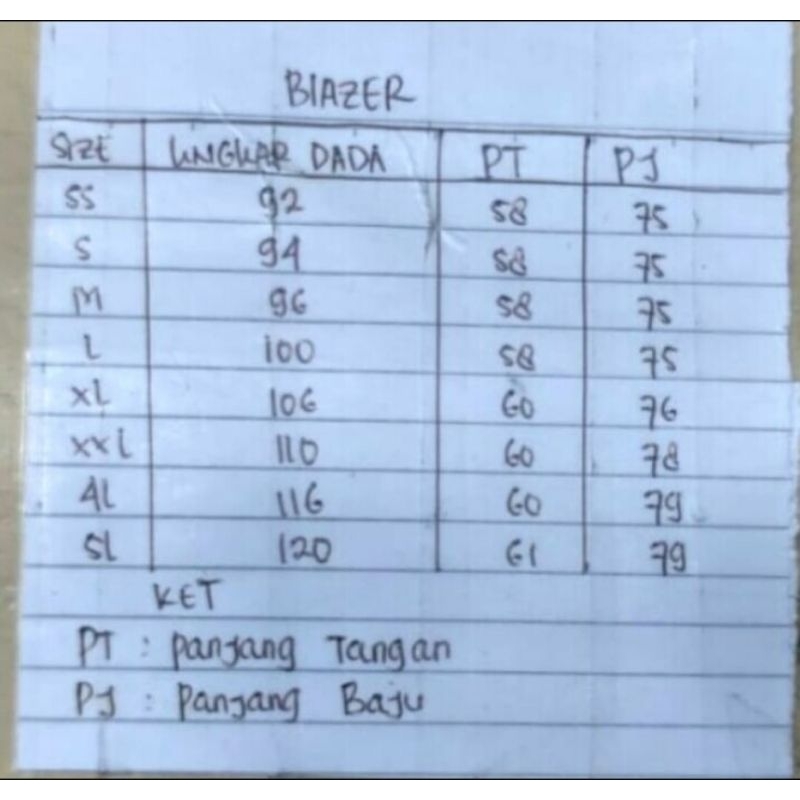 BlAZER
SIZE LINGKAR DADA PT PJ
SS 92 58 75
S 94 58 75
M 96 58 75
L 100 58 75
XL 106 60 76
XXL 110 60 78
4L 116 60 79
5L 120 61 79
KET
PT : Panjang Tangan
PJ : Panjang Baju